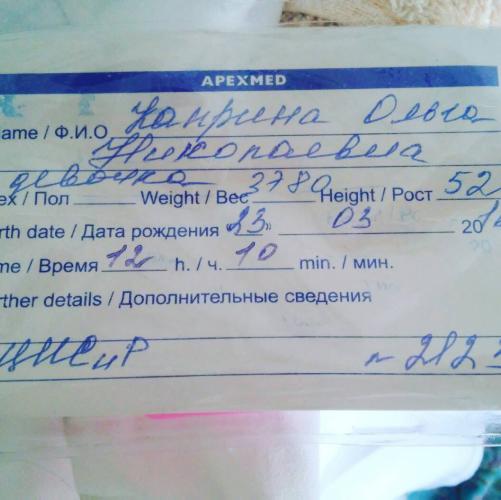 APEXMED
ame / Ф.И.О Каприна Ольга
Николаевна
девочка
ex / Пол Weight / Вес 3780 Height / Рост 52
rth date / Дата рождения 23» 03 20
me / Время 12 h. / ч. 10 min. / мин.
rther details / Дополнительные сведения
№ 212